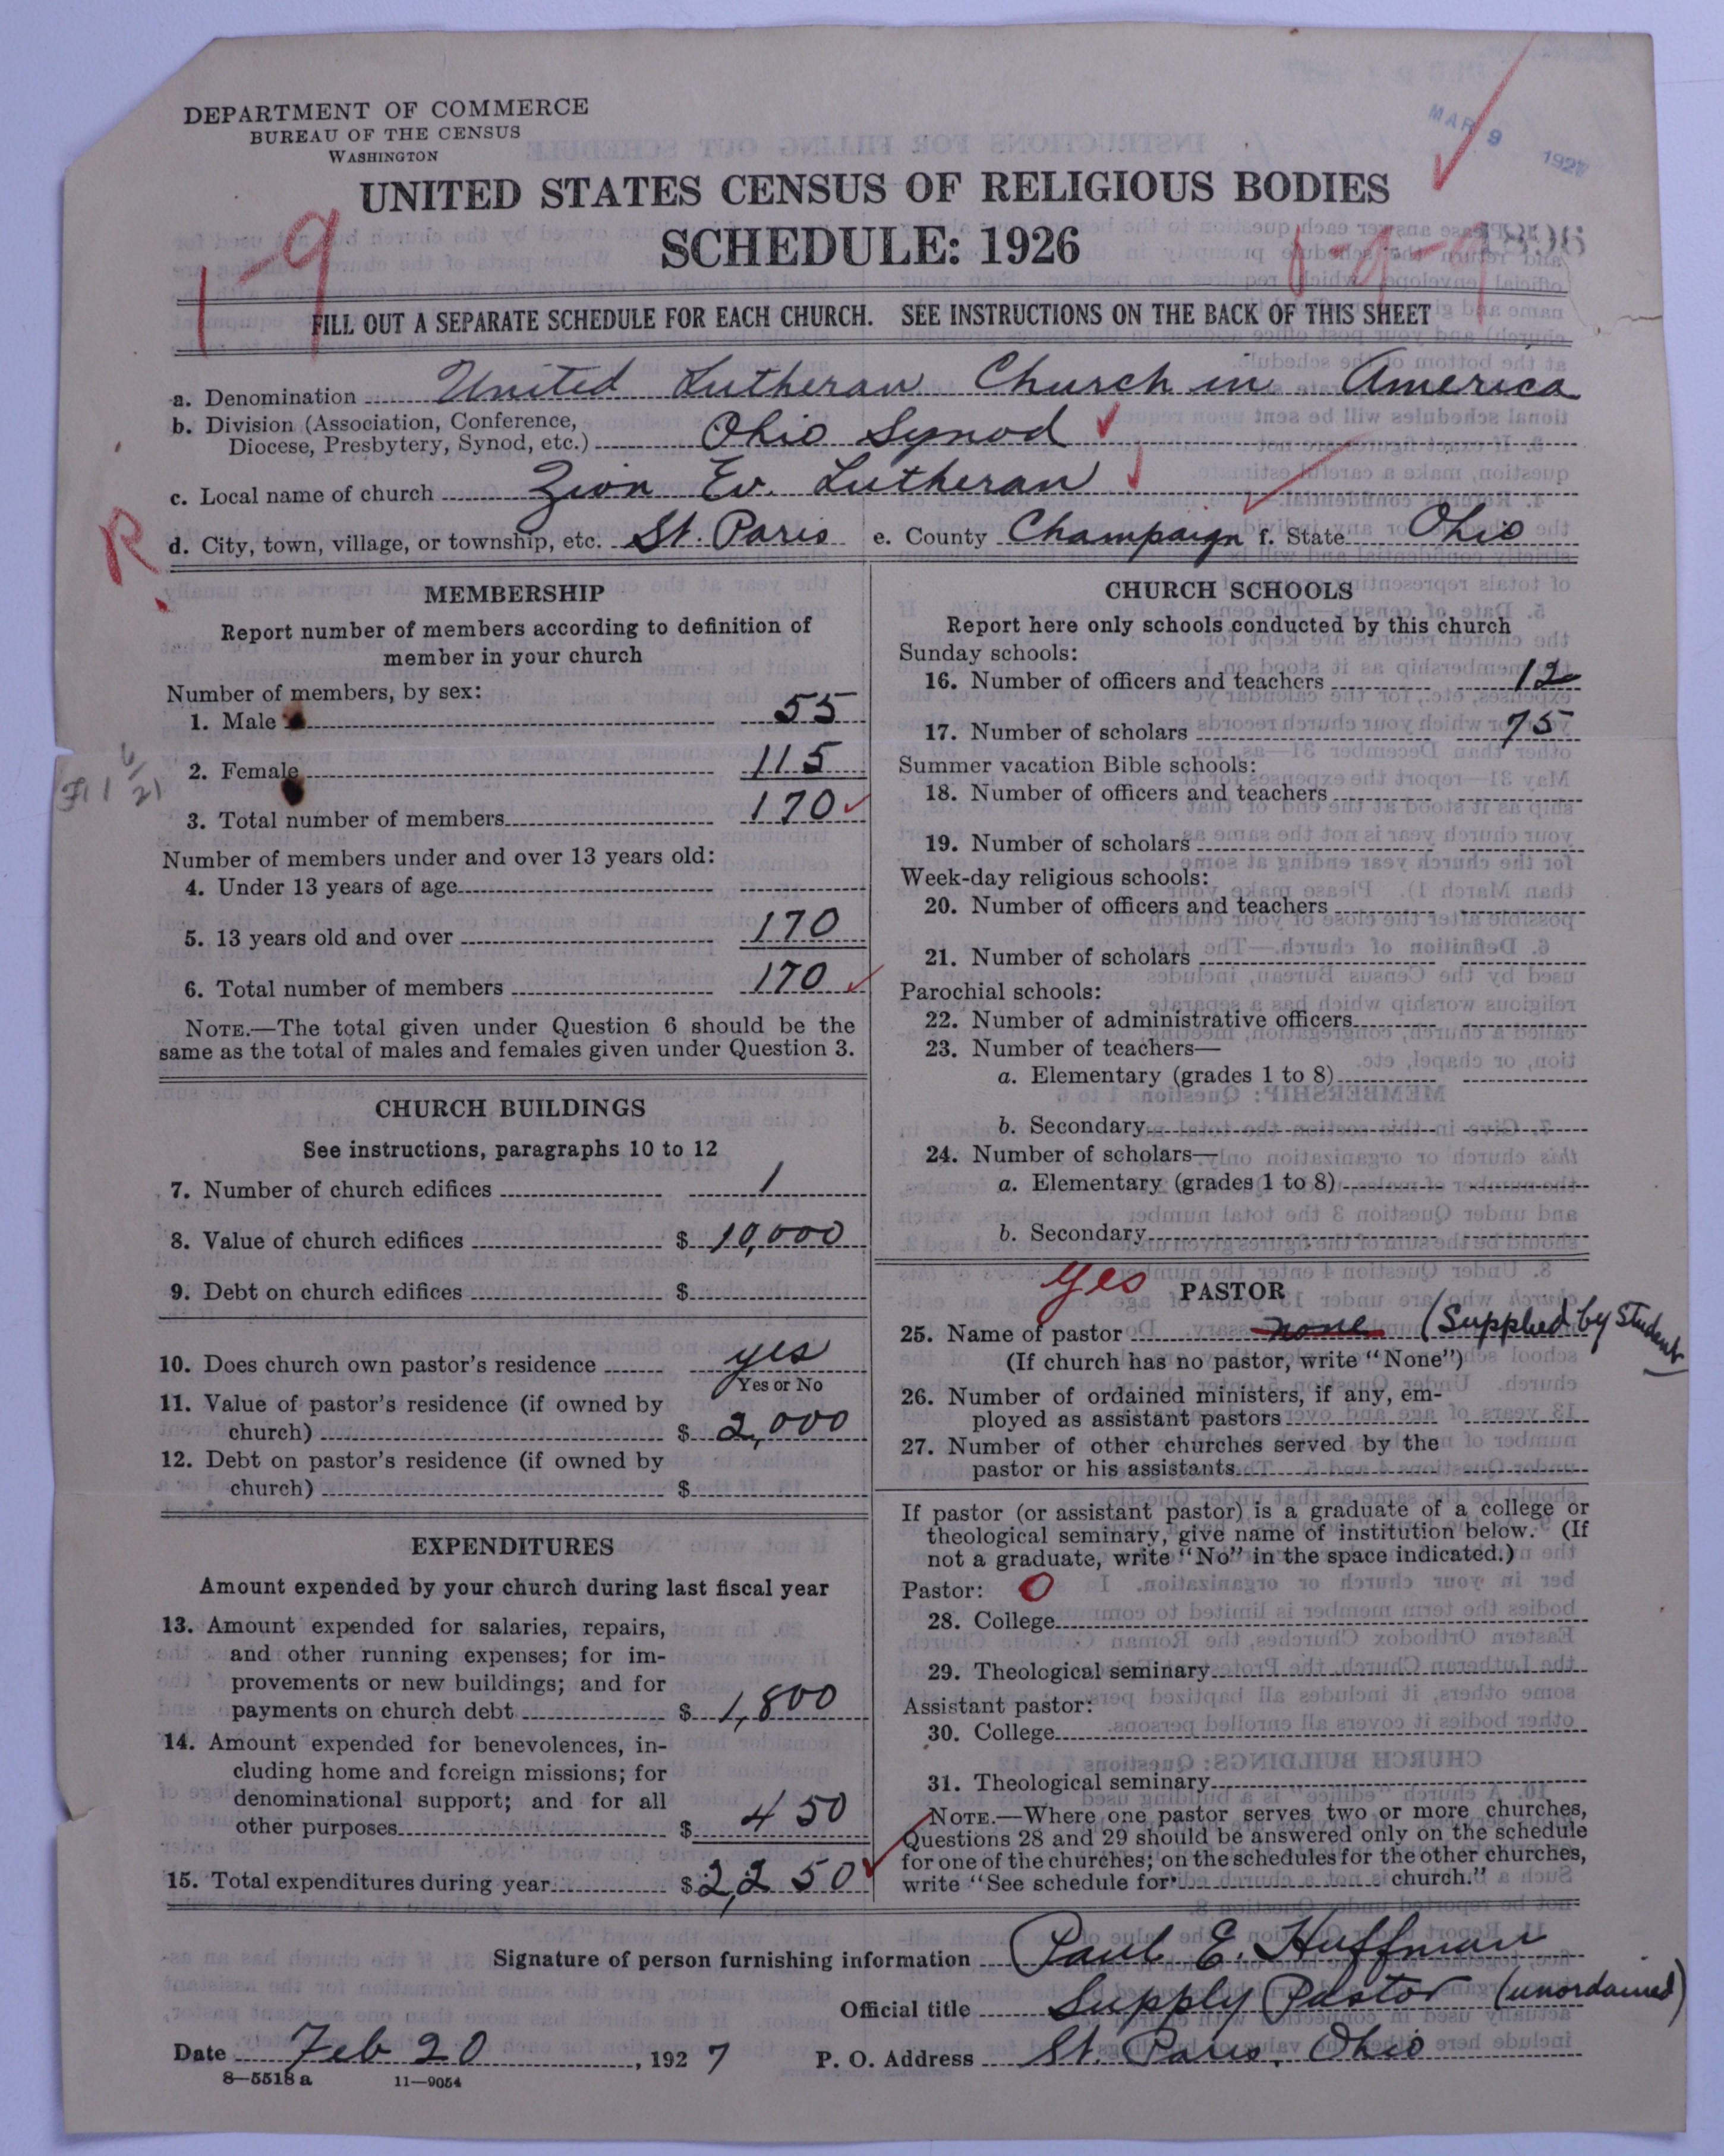 DEPARTMENT OF COMMERCE
BUREAU OF THE CENSUS
WASHINGTON
MAR 9 1927
UNITED STATES CENSUS OF RELIGIOUS BODIES
SCHEDULE: 1926
1-9
1-9-9
FILL OUT A SEPARATE SCHEDULE FOR EACH CHURCH. SEE INSTRUCTIONS ON THE BACK OF THIS SHEET
a. Denomination United Lutheran Church in America
b. Division (Association, Conference,
Diocese, Presbytery, Synod, etc.) Ohio Synod
c. Local name of church Zion Ev. Lutheran
R
d. City, town, village, or township, etc. St. Paris e. County Champaign f. State Ohio
MEMBERSHIP
Report number of members according to definition of
member in your church
Number of members, by sex:
1. Male 55
2. Female 115
3. Total number of members 170
Number of members under and over 13 years old:
4. Under 13 years of age
5. 13 years old and over 170
6. Total number of members 170
NOTE.—The total given under Question 6 should be the
same as the total of males and females given under Question 3.
CHURCH BUILDINGS
See instructions, paragraphs 10 to 12
7. Number of church edifices 1
8. Value of church edifices $ 10,000
9. Debt on church edifices $
10. Does church own pastor's residence yes
Yes or No
11. Value of pastor's residence (if owned by
church) $ 2,000
12. Debt on pastor's residence (if owned by
church) $
EXPENDITURES
Amount expended by your church during last fiscal year
13. Amount expended for salaries, repairs,
and other running expenses; for im-
provements or new buildings; and for
payments on church debt $ 1,800
14. Amount expended for benevolences, in-
cluding home and foreign missions; for
denominational support; and for all
other purposes $ 450
15. Total expenditures during year $ 2,250
CHURCH SCHOOLS
Report here only schools conducted by this church
Sunday schools:
16. Number of officers and teachers 12
17. Number of scholars 75
Summer vacation Bible schools:
18. Number of officers and teachers
19. Number of scholars
Week-day religious schools:
20. Number of officers and teachers
21. Number of scholars
Parochial schools:
22. Number of administrative officers
23. Number of teachers—
a. Elementary (grades 1 to 8)
b. Secondary
24. Number of scholars—
a. Elementary (grades 1 to 8)
b. Secondary
yes PASTOR
25. Name of pastor none (Supplied by Student
(If church has no pastor, write "None")
26. Number of ordained ministers, if any, em-
ployed as assistant pastors
27. Number of other churches served by the
pastor or his assistants
If pastor (or assistant pastor) is a graduate of a college or
theological seminary, give name of institution below. (If
not a graduate, write "No" in the space indicated.)
Pastor: O
28. College
29. Theological seminary
Assistant pastor:
30. College
31. Theological seminary
NOTE.—Where one pastor serves two or more churches,
Questions 28 and 29 should be answered only on the schedule
for one of the churches; on the schedules for the other churches,
write "See schedule for church."
Signature of person furnishing information Paul E. Huffman
Official title Supply Pastor (unordained)
Date Feb 20, 1927 P. O. Address St. Paris, Ohio
8—5518a 11—9054